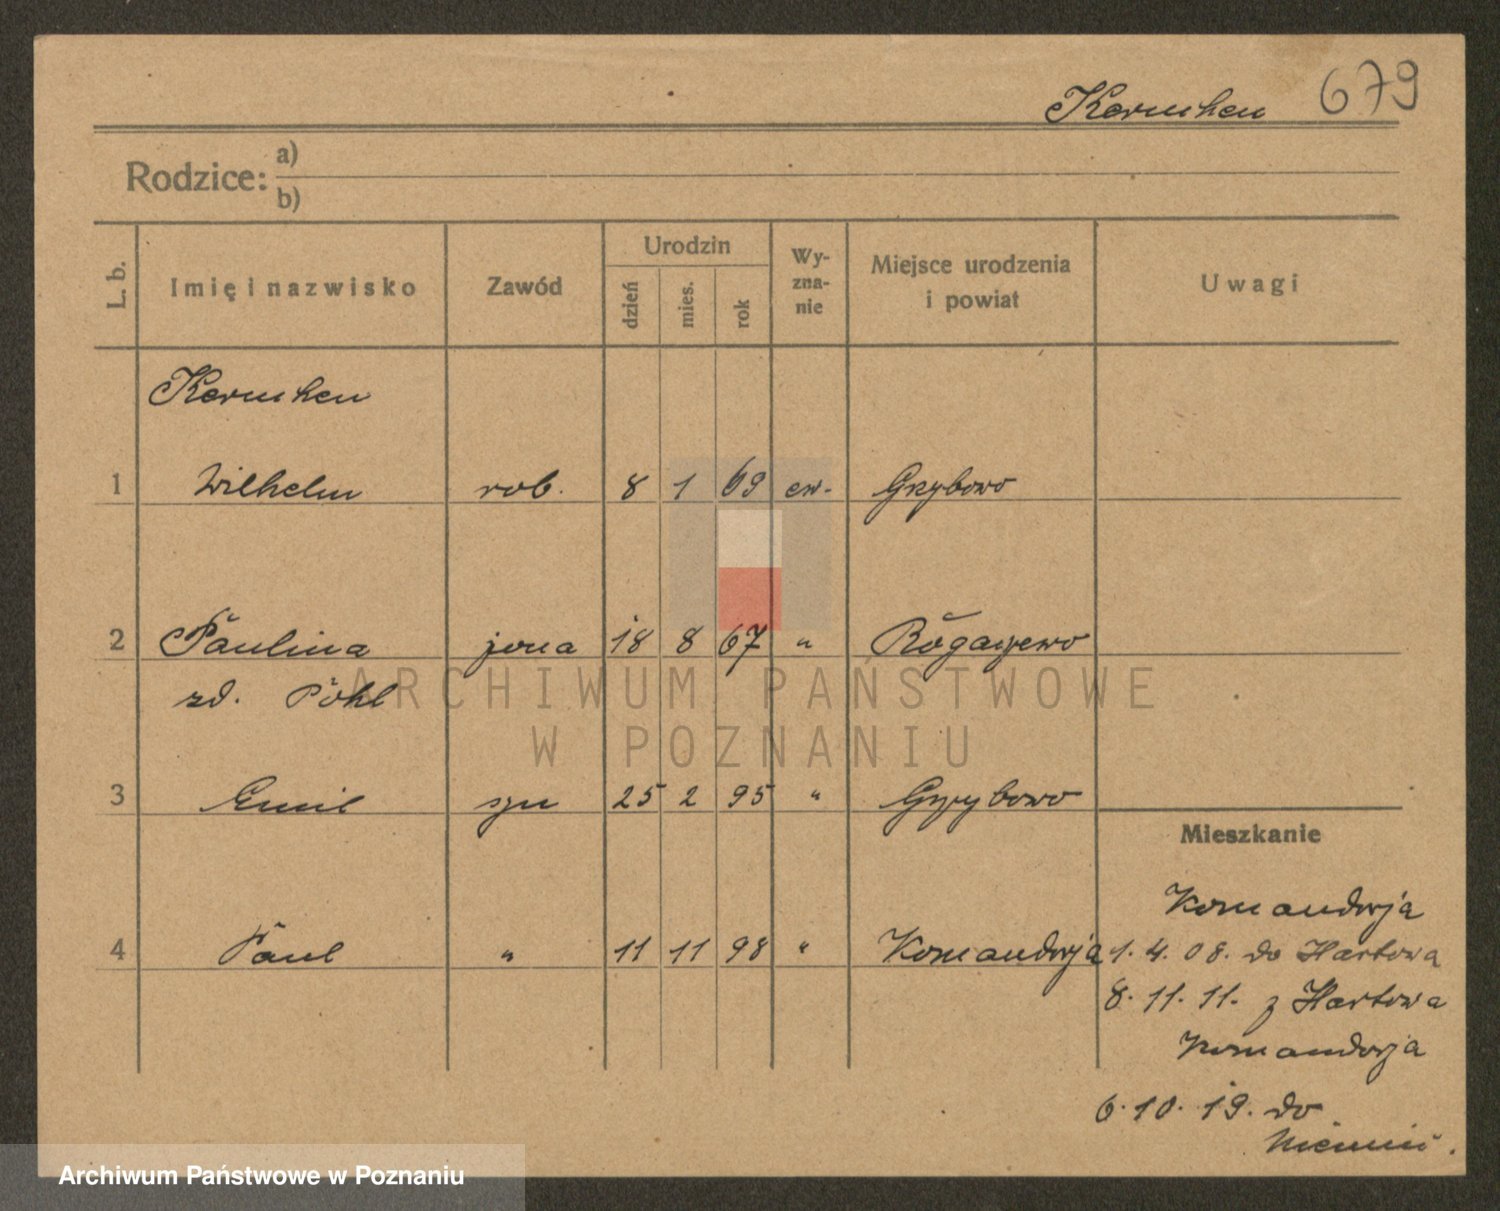 Kermhen 679
Rodzice: a)
b)
L. b. Imię i nazwisko Zawód Urodzin dzień mies. rok Wy-zna-nie Miejsce urodzenia i powiat Uwagi
Kermhen
1 Wilhelm rob. 8 1 69 ew. Grzybowo
2 Paulina żona 18 8 67 " Rogaczewo
zd. Pohl
3 Emil syn 25 2 95 " Grzybowo
Mieszkanie
Komandorja
4 Paul " 11 11 98 " Komandorja 1. 4. 08. do Hartowa
8. 11. 11. z Hartowa
Komandorja
6. 10. 19. do
Niemiec.
ARCHIWUM PAŃSTWOWE
W POZNANIU
Archiwum Państwowe w Poznaniu